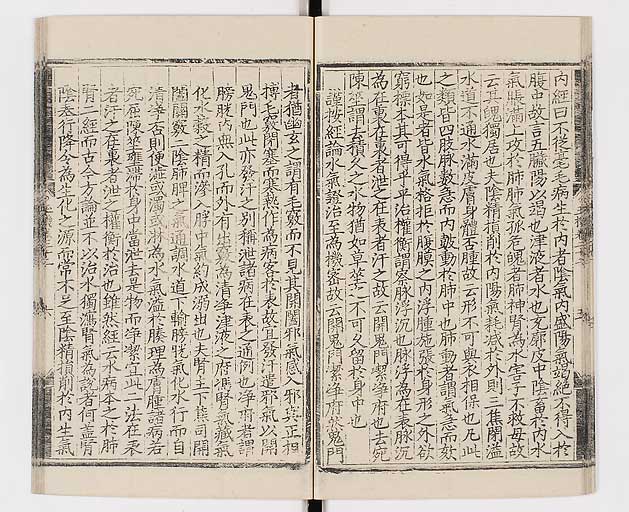 內經曰不從毫毛病生於內者陰氣內盛陽氣竭絕不得入於
腹中故言五臟陽以竭也津液者水也充郭皮中陰畜於內水
氣脹滿上攻於肺肺氣孤危魄者肺神腎為水害子不救母故
云其魄獨居也夫陰精損削於內陽氣耗減於外則三焦閉溢
水道不通水滿皮膚身體否腫故云形不可與衣相保也凡此
之類皆四肢脉數急而內鼓動於肺中也肺動者謂氣急而欬
也如是者皆水氣格拒於腹膜之內浮腫施張於身形之外欲
窮標本其可得乎平治權衡謂察脉浮沉也脉浮為在表脉沉
為在裏在裏者泄之在表者汗之故云開鬼門潔淨府也去宛
陳莝謂去積久之水物猶如草莝之不可久留於身中也
謹按經論水氣證治至為機密故云開鬼門潔淨府然鬼門
者猶幽玄之謂有毛竅而不見其開闔邪氣感入邪與正相
搏毛竅閉塞而寒熱作為病客於表故宜發汗遣邪氣以開
鬼門也此亦發汗之別稱泄諸病在表之通例也淨府者謂
膀胱內無入孔而外有出竅為清淨津液之府馮腎氣臟氣
化水穀之精而滲入脬中氣約成溺出也夫腎主下焦司開
闔竅二陰肺脾之氣通調水道下輸膀胱氣化水行而自
清淨否則便澁或濁或為水氣溢於腠理為膚腫諸病若
宛屈陳莝壅滯於身中當泄去是物而淨潔宜此二法在表
者汗之在裏者泄之權衡於治也雖然經云水病本之於肺
腎二經而古今方論並不以治水獨瀉腎氣為說者何蓋腎
陰行降令為生化之源而常不足至陰精損削於內生氣